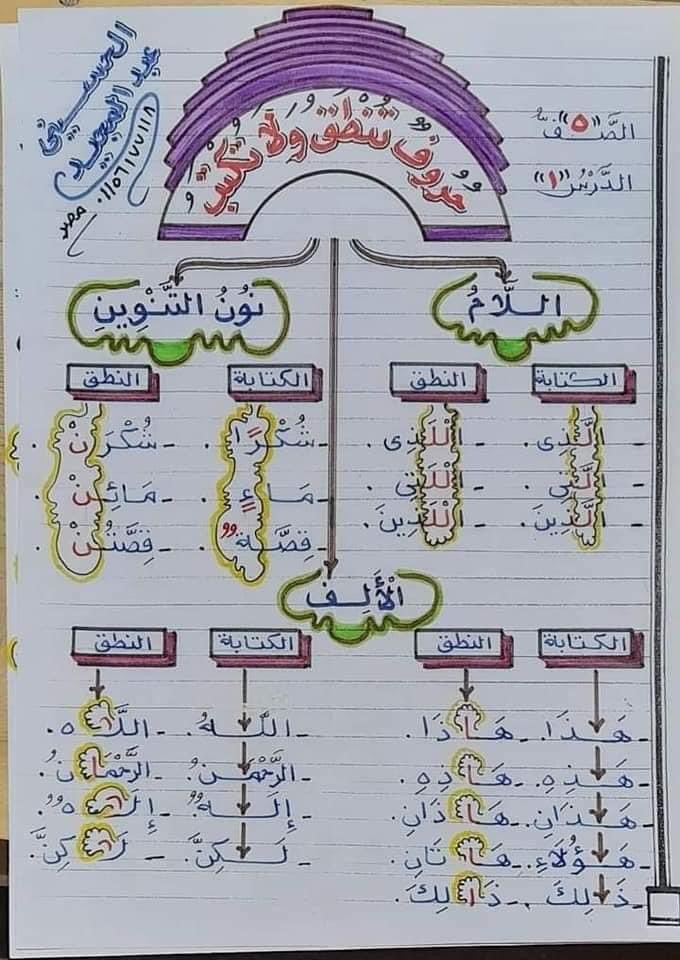 الصَّفُّ "٥"
الدَّرْسُ "١"
الحسيني
عبد المجيد
٠١١٥٦١٧٧١١٨
مصر
حروفٌ تُنْطَقُ وَلَا تُكْتَبُ
اللَّامُ
نُونُ التَّنْوِينِ
الكتابة النطق
- الَّذِى. - الْلَذِى.
- الَّتِى. - الْلَتِى.
- الَّذِينَ. - الْلَذِينَ.
الكتابة النطق
- شُكْرًا. - شُكْرَنْ.
- مَاءٍ. - مَائِنْ.
- قِصَّةٌ. - قِصَّتُنْ.
الْأَلِف
الكتابة النطق
- هَذَا. - هَاذَا.
- هَذِهِ. - هَاذِهِ.
- هَذَانِ. - هَاذَانِ.
- هَؤُلَاءِ. - هَاتَانِ.
- ذَلِكَ. - ذَالِكَ.
الكتابة النطق
- اللَّهُ. - اللَّاه.
- الرَّحْمَنُ. - الرَّحْمَانُ.
- إِلَهٌ. - إِلَاهٌ.
- لَكِنَّ. - لَاكِنَّ.